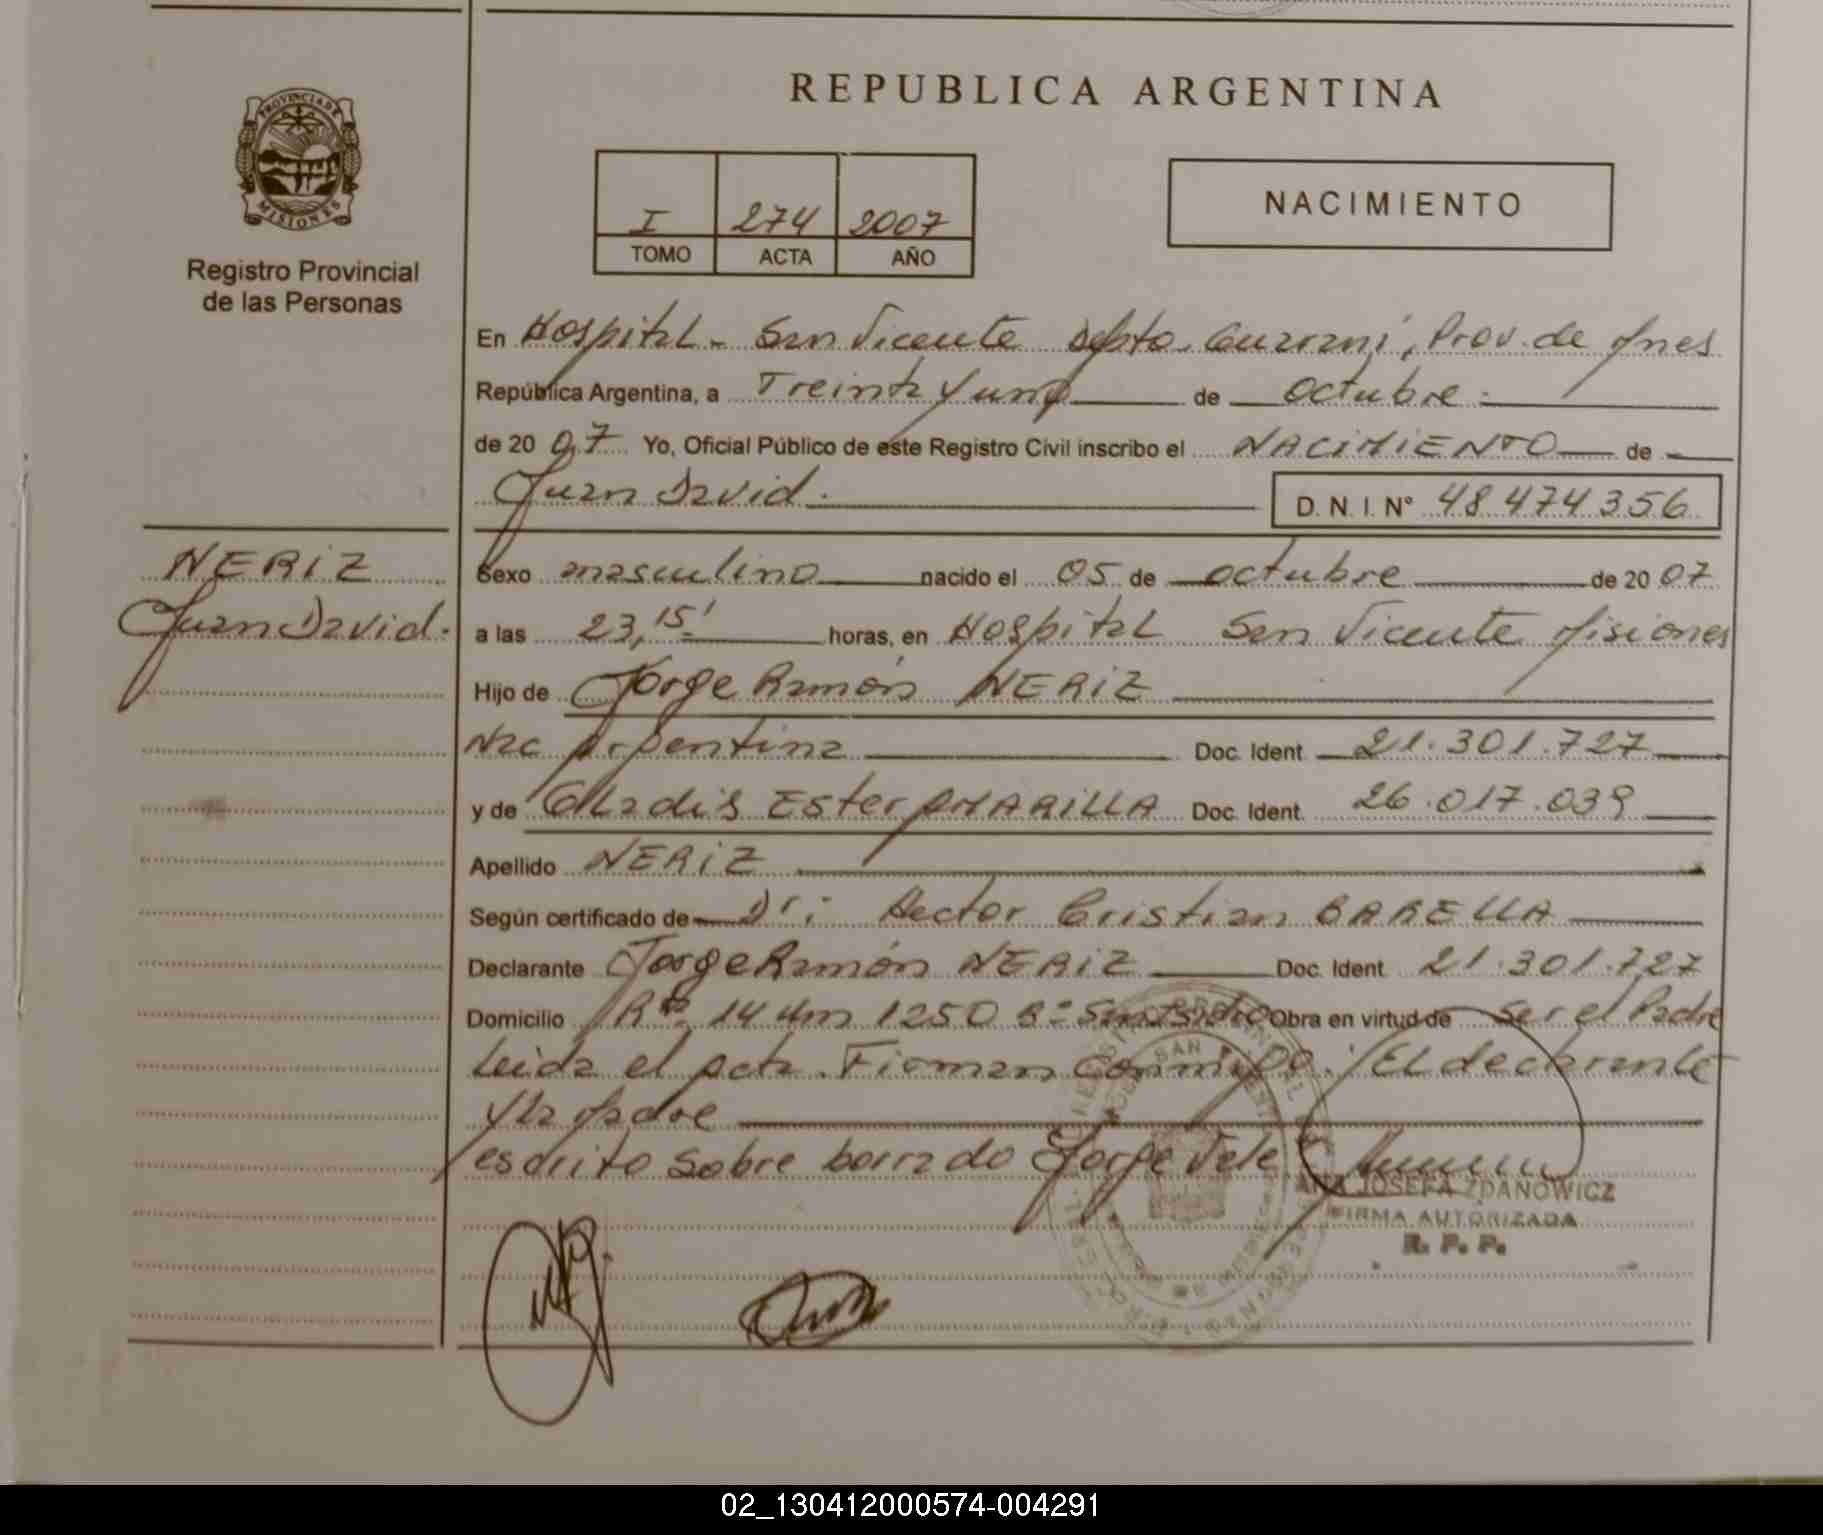 REPUBLICA ARGENTINA
PROVINCIA DE
MISIONES
Registro Provincial
de las Personas
I 274 2007
TOMO ACTA AÑO
NACIMIENTO
En Hospital - San Vicente Depto. Guaraní, Prov. de Mnes
República Argentina, a Treinta y uno de Octubre
de 20 07 Yo, Oficial Público de este Registro Civil inscribo el NACIMIENTO de
Juan David. D. N. I. N° 48 474 356
NERIZ
Juan David.
Sexo masculino nacido el 05 de octubre de 20 07
a las 23,15' horas, en Hospital San Vicente Misiones
Hijo de Jorge Ramón NERIZ
Nac Argentina Doc. Ident. 21.301.727
y de Gladis Ester AMARILLA Doc. Ident. 26.017.039
Apellido NERIZ
Según certificado de Dr: Hector Cristian BARELLA
Declarante Jorge Ramón NERIZ Doc. Ident. 21.301.727
Domicilio 14 Km 1250 B° San Isidro Obra en virtud de ser el Padre
Leida el acta. Firman conmigo: El declarante
y la Madre
escrito sobre borrado Jorge Vale
ANA JOSEFA ZDANOWICZ
FIRMA AUTORIZADA
R. P. P.
02_130412000574-004291